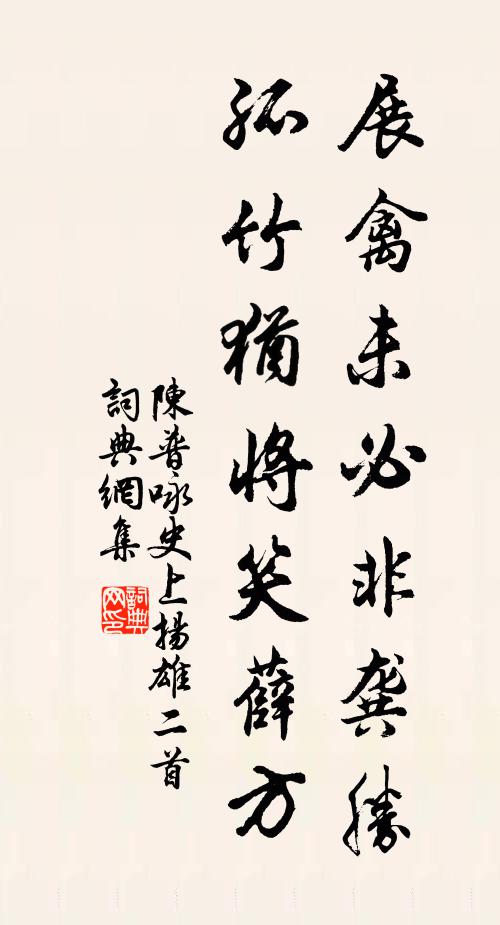 展禽未必非龔勝
孤竹猶將笑薛方
陳普咏史上揚雄二首
詞典網集
詞典网印